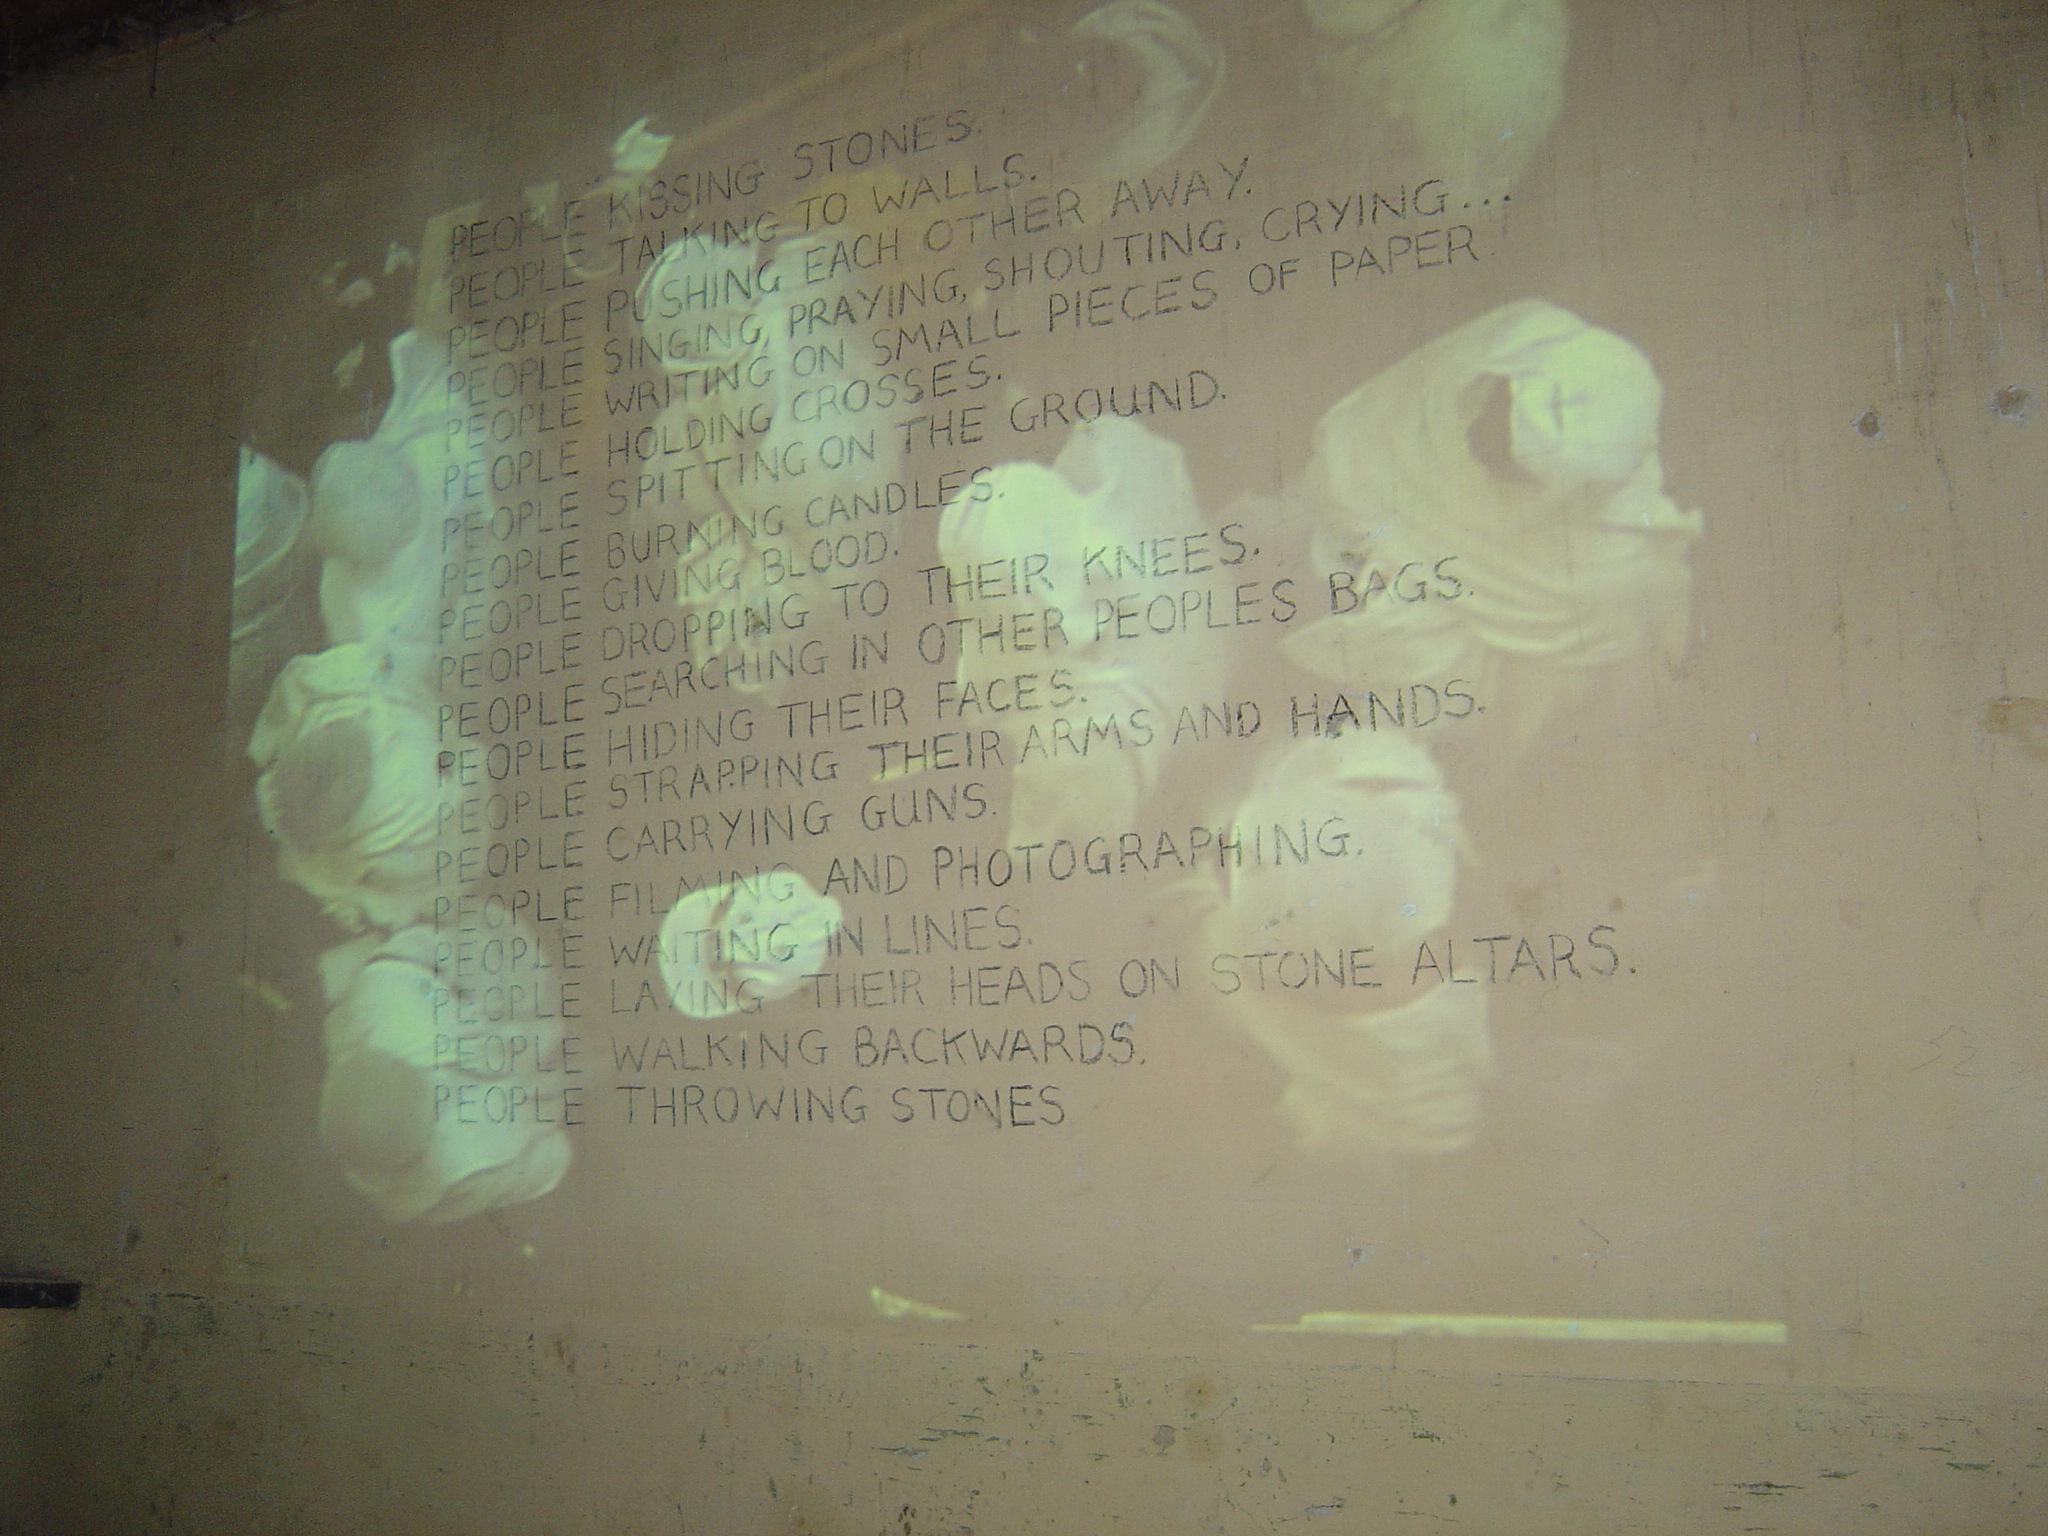 PEOPLE KISSING STONES.
PEOPLE TALKING TO WALLS.
PEOPLE PUSHING EACH OTHER AWAY.
PEOPLE SINGING, PRAYING, SHOUTING, CRYING...
PEOPLE WRITING ON SMALL PIECES OF PAPER.
PEOPLE HOLDING CROSSES.
PEOPLE SPITTING ON THE GROUND.
PEOPLE BURNING CANDLES.
PEOPLE GIVING BLOOD.
PEOPLE DROPPING TO THEIR KNEES.
PEOPLE SEARCHING IN OTHER PEOPLES BAGS.
PEOPLE HIDING THEIR FACES.
PEOPLE STRAPPING THEIR ARMS AND HANDS.
PEOPLE CARRYING GUNS.
PEOPLE FILMING AND PHOTOGRAPHING.
PEOPLE WAITING IN LINES.
PEOPLE LAYING THEIR HEADS ON STONE ALTARS.
PEOPLE WALKING BACKWARDS.
PEOPLE THROWING STONES